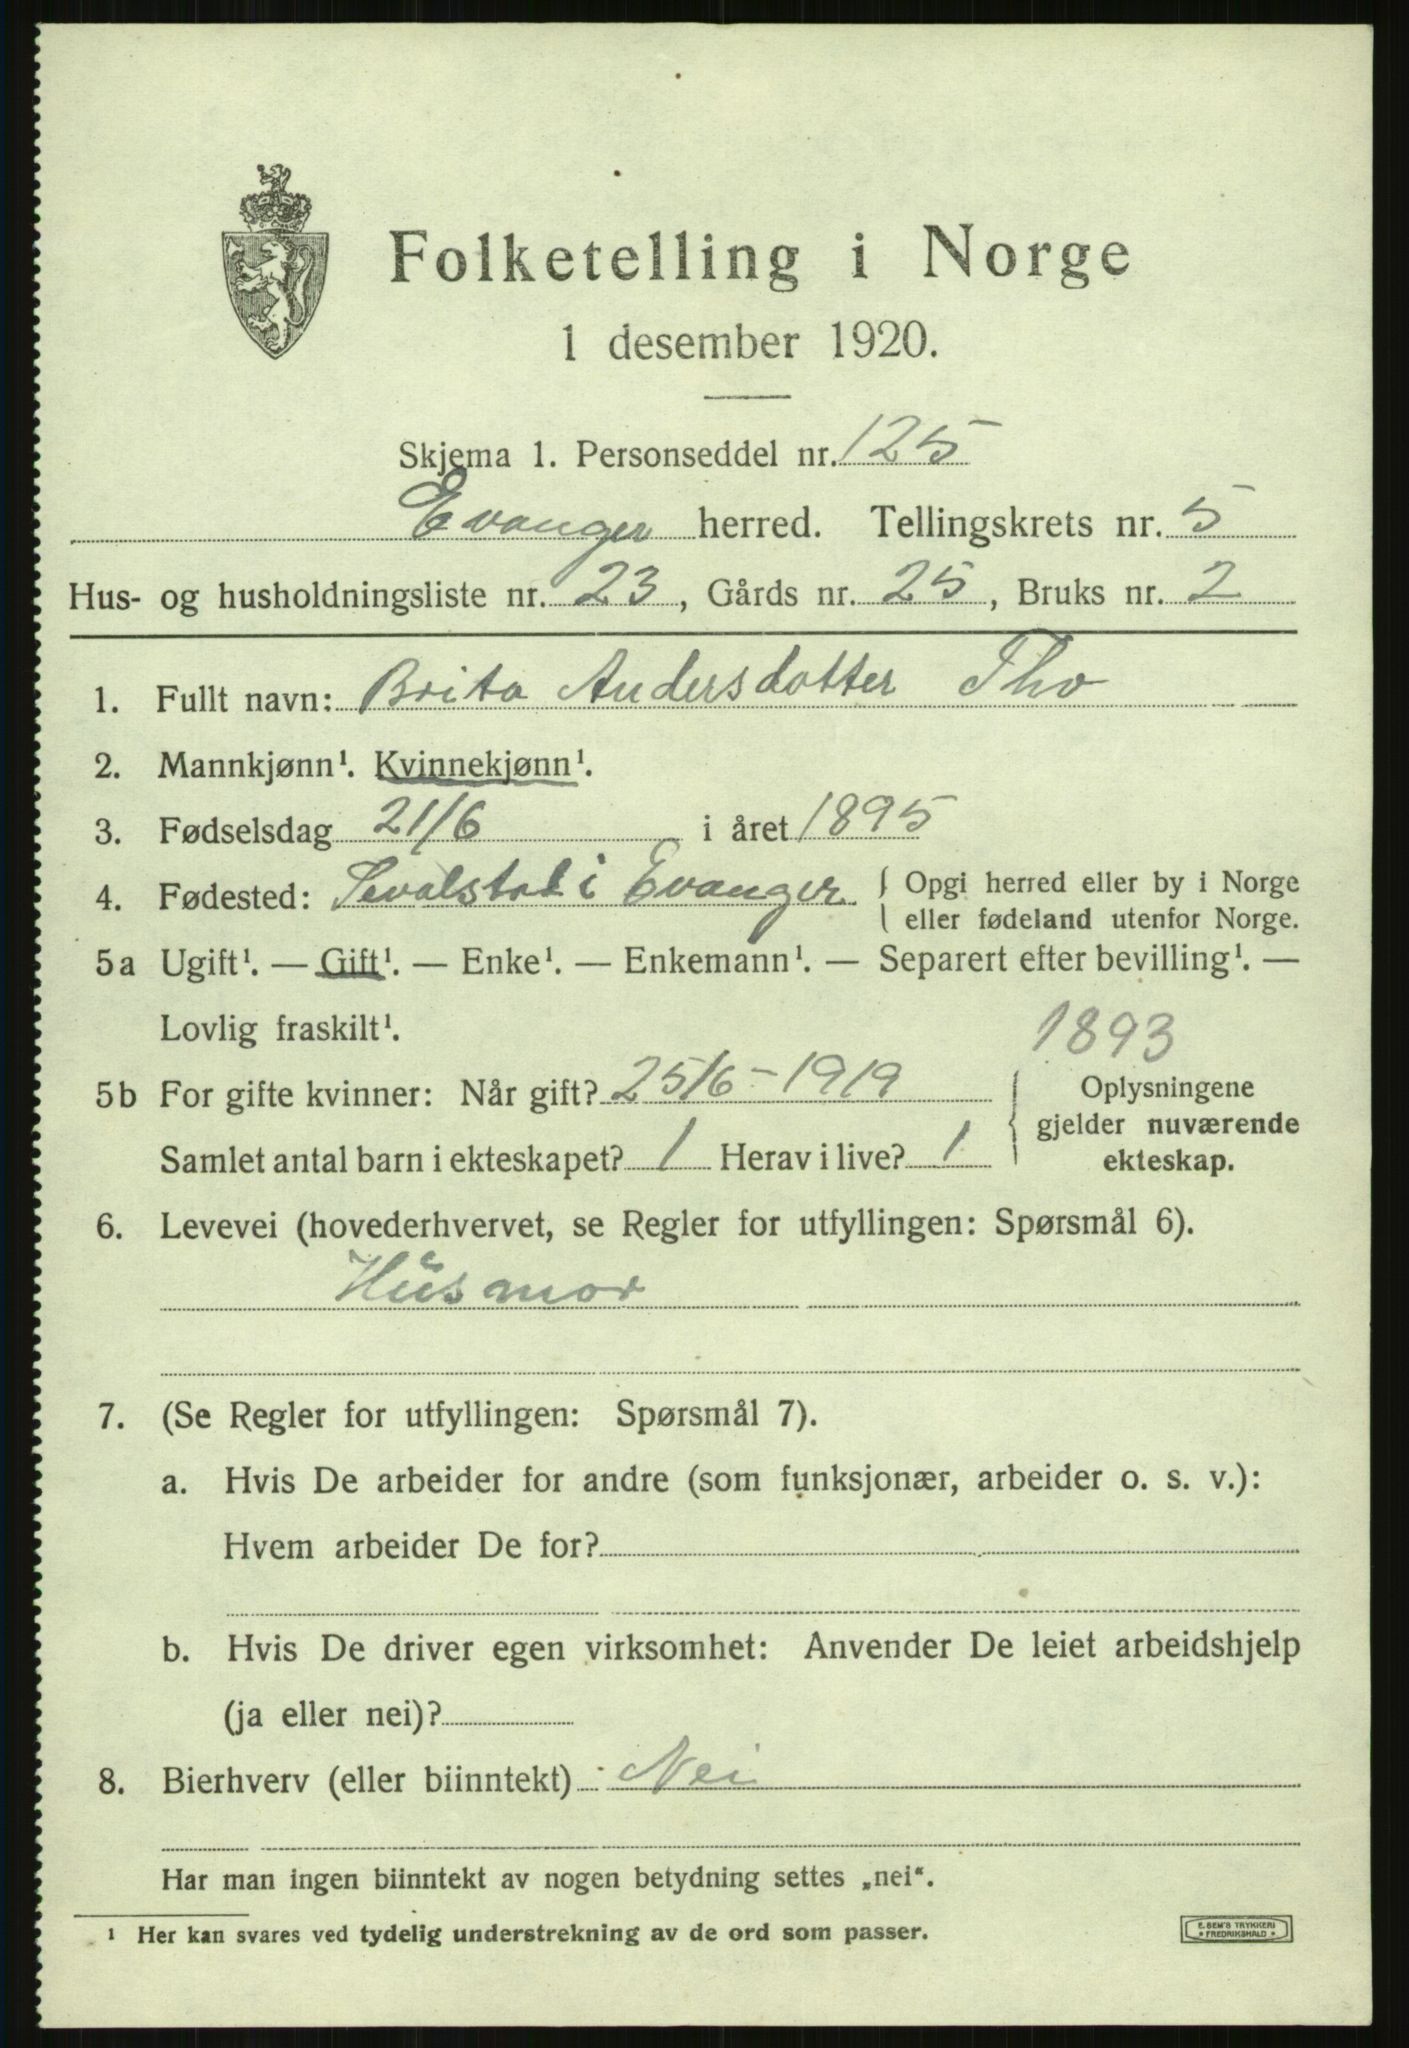 Folketelling i Norge
1 desember 1920.
Skjema 1. Personseddel nr. 125
Evanger herred. Tellingskrets nr. 5
Hus- og husholdningsliste nr. 23, Gårds nr. 25, Bruks nr. 2
1. Fullt navn: Brita Andersdotter Tho
2. Mannkjønn¹. Kvinnekjønn¹.
3. Fødselsdag 21/6 i året 1895
4. Fødested: i Evanger { Opgi herred eller by i Norge
eller fødeland utenfor Norge.
5a Ugift¹. — Gift¹. — Enke¹. — Enkemann¹. — Separert efter bevilling¹. —
Lovlig fraskilt¹.
1893
5b For gifte kvinner: Når gift? 25/6-1919 { Oplysningene
gjelder nuværende
Samlet antal barn i ekteskapet? 1 Herav i live? 1 ekteskap.
6. Levevei (hovederhvervet, se Regler for utfyllingen: Spørsmål 6).
Husmor
7. (Se Regler for utfyllingen: Spørsmål 7).
a. Hvis De arbeider for andre (som funksjonær, arbeider o. s. v.):
Hvem arbeider De for?
b. Hvis De driver egen virksomhet: Anvender De leiet arbeidshjelp
(ja eller nei)?
8. Bierhverv (eller biinntekt) Nei
Har man ingen biinntekt av nogen betydning settes „nei“.
¹ Her kan svares ved tydelig understrekning av de ord som passer.
E. SEM'S TRYKKERI
* FREDRIKSHALD *